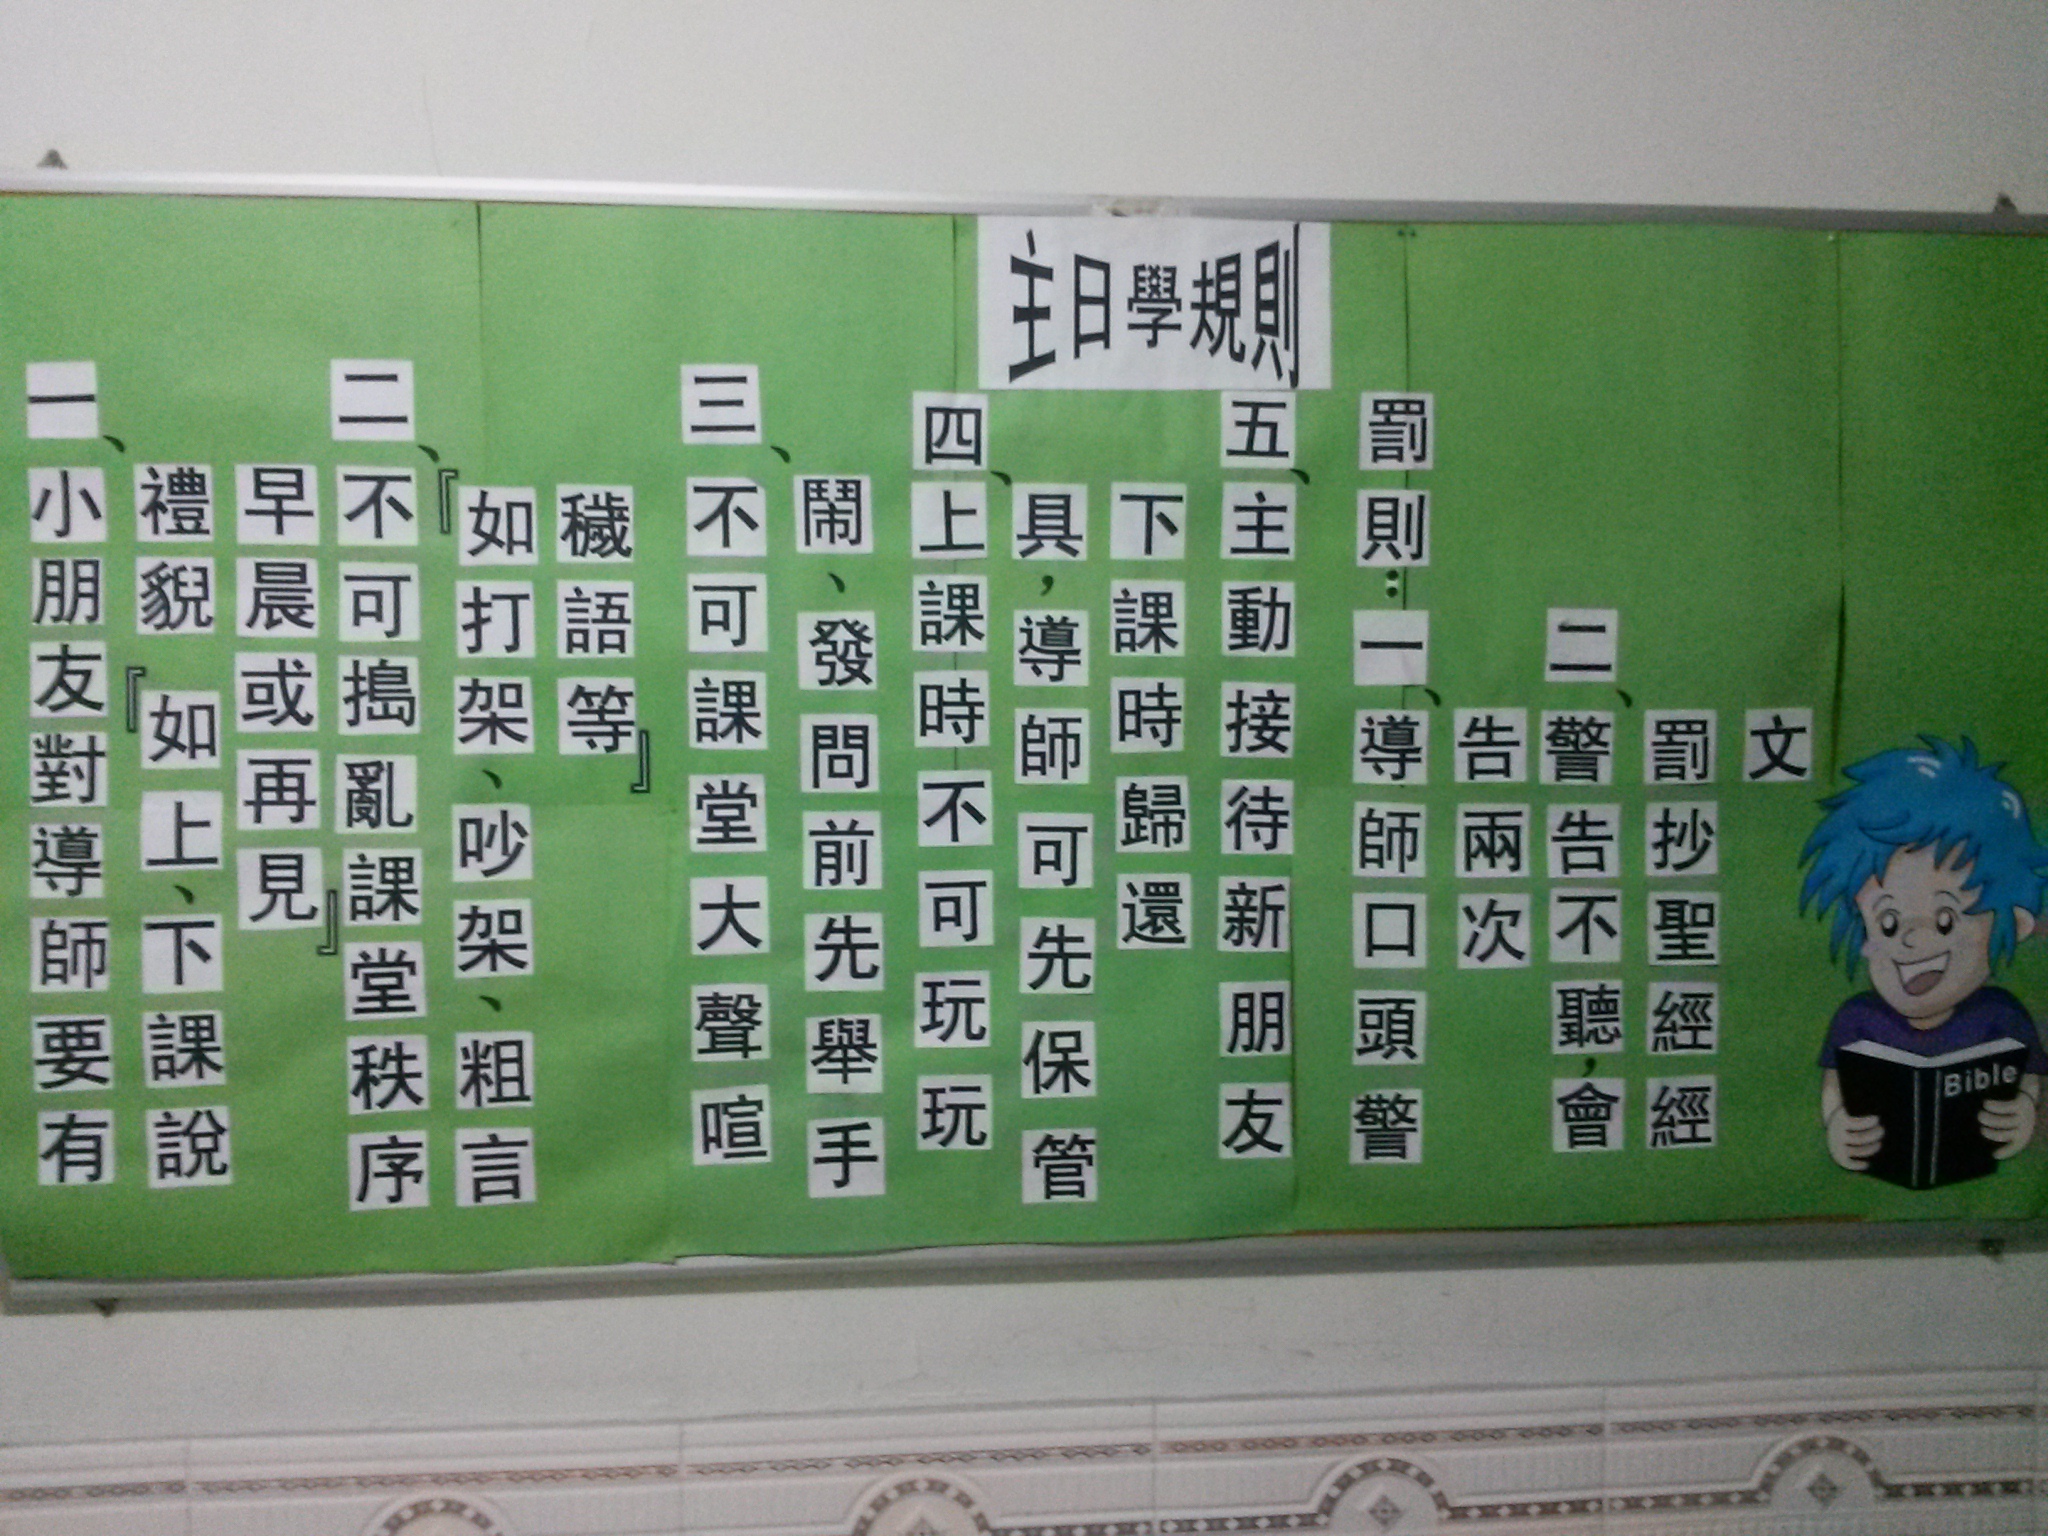 主日學規則
一、小朋友對導師要有
禮貌『如上、下課說
早晨或再見』
二、不可搗亂課堂秩序
『如打架、吵架、粗言
穢語等』
三、不可課堂大聲喧
鬧、發問前先舉手
四、上課時不可玩玩
具，導師可先保管
下課時歸還
五、主動接待新朋友
罰則：一、導師口頭警
告兩次
二、警告不聽，會
罰抄聖經經
文
Bible